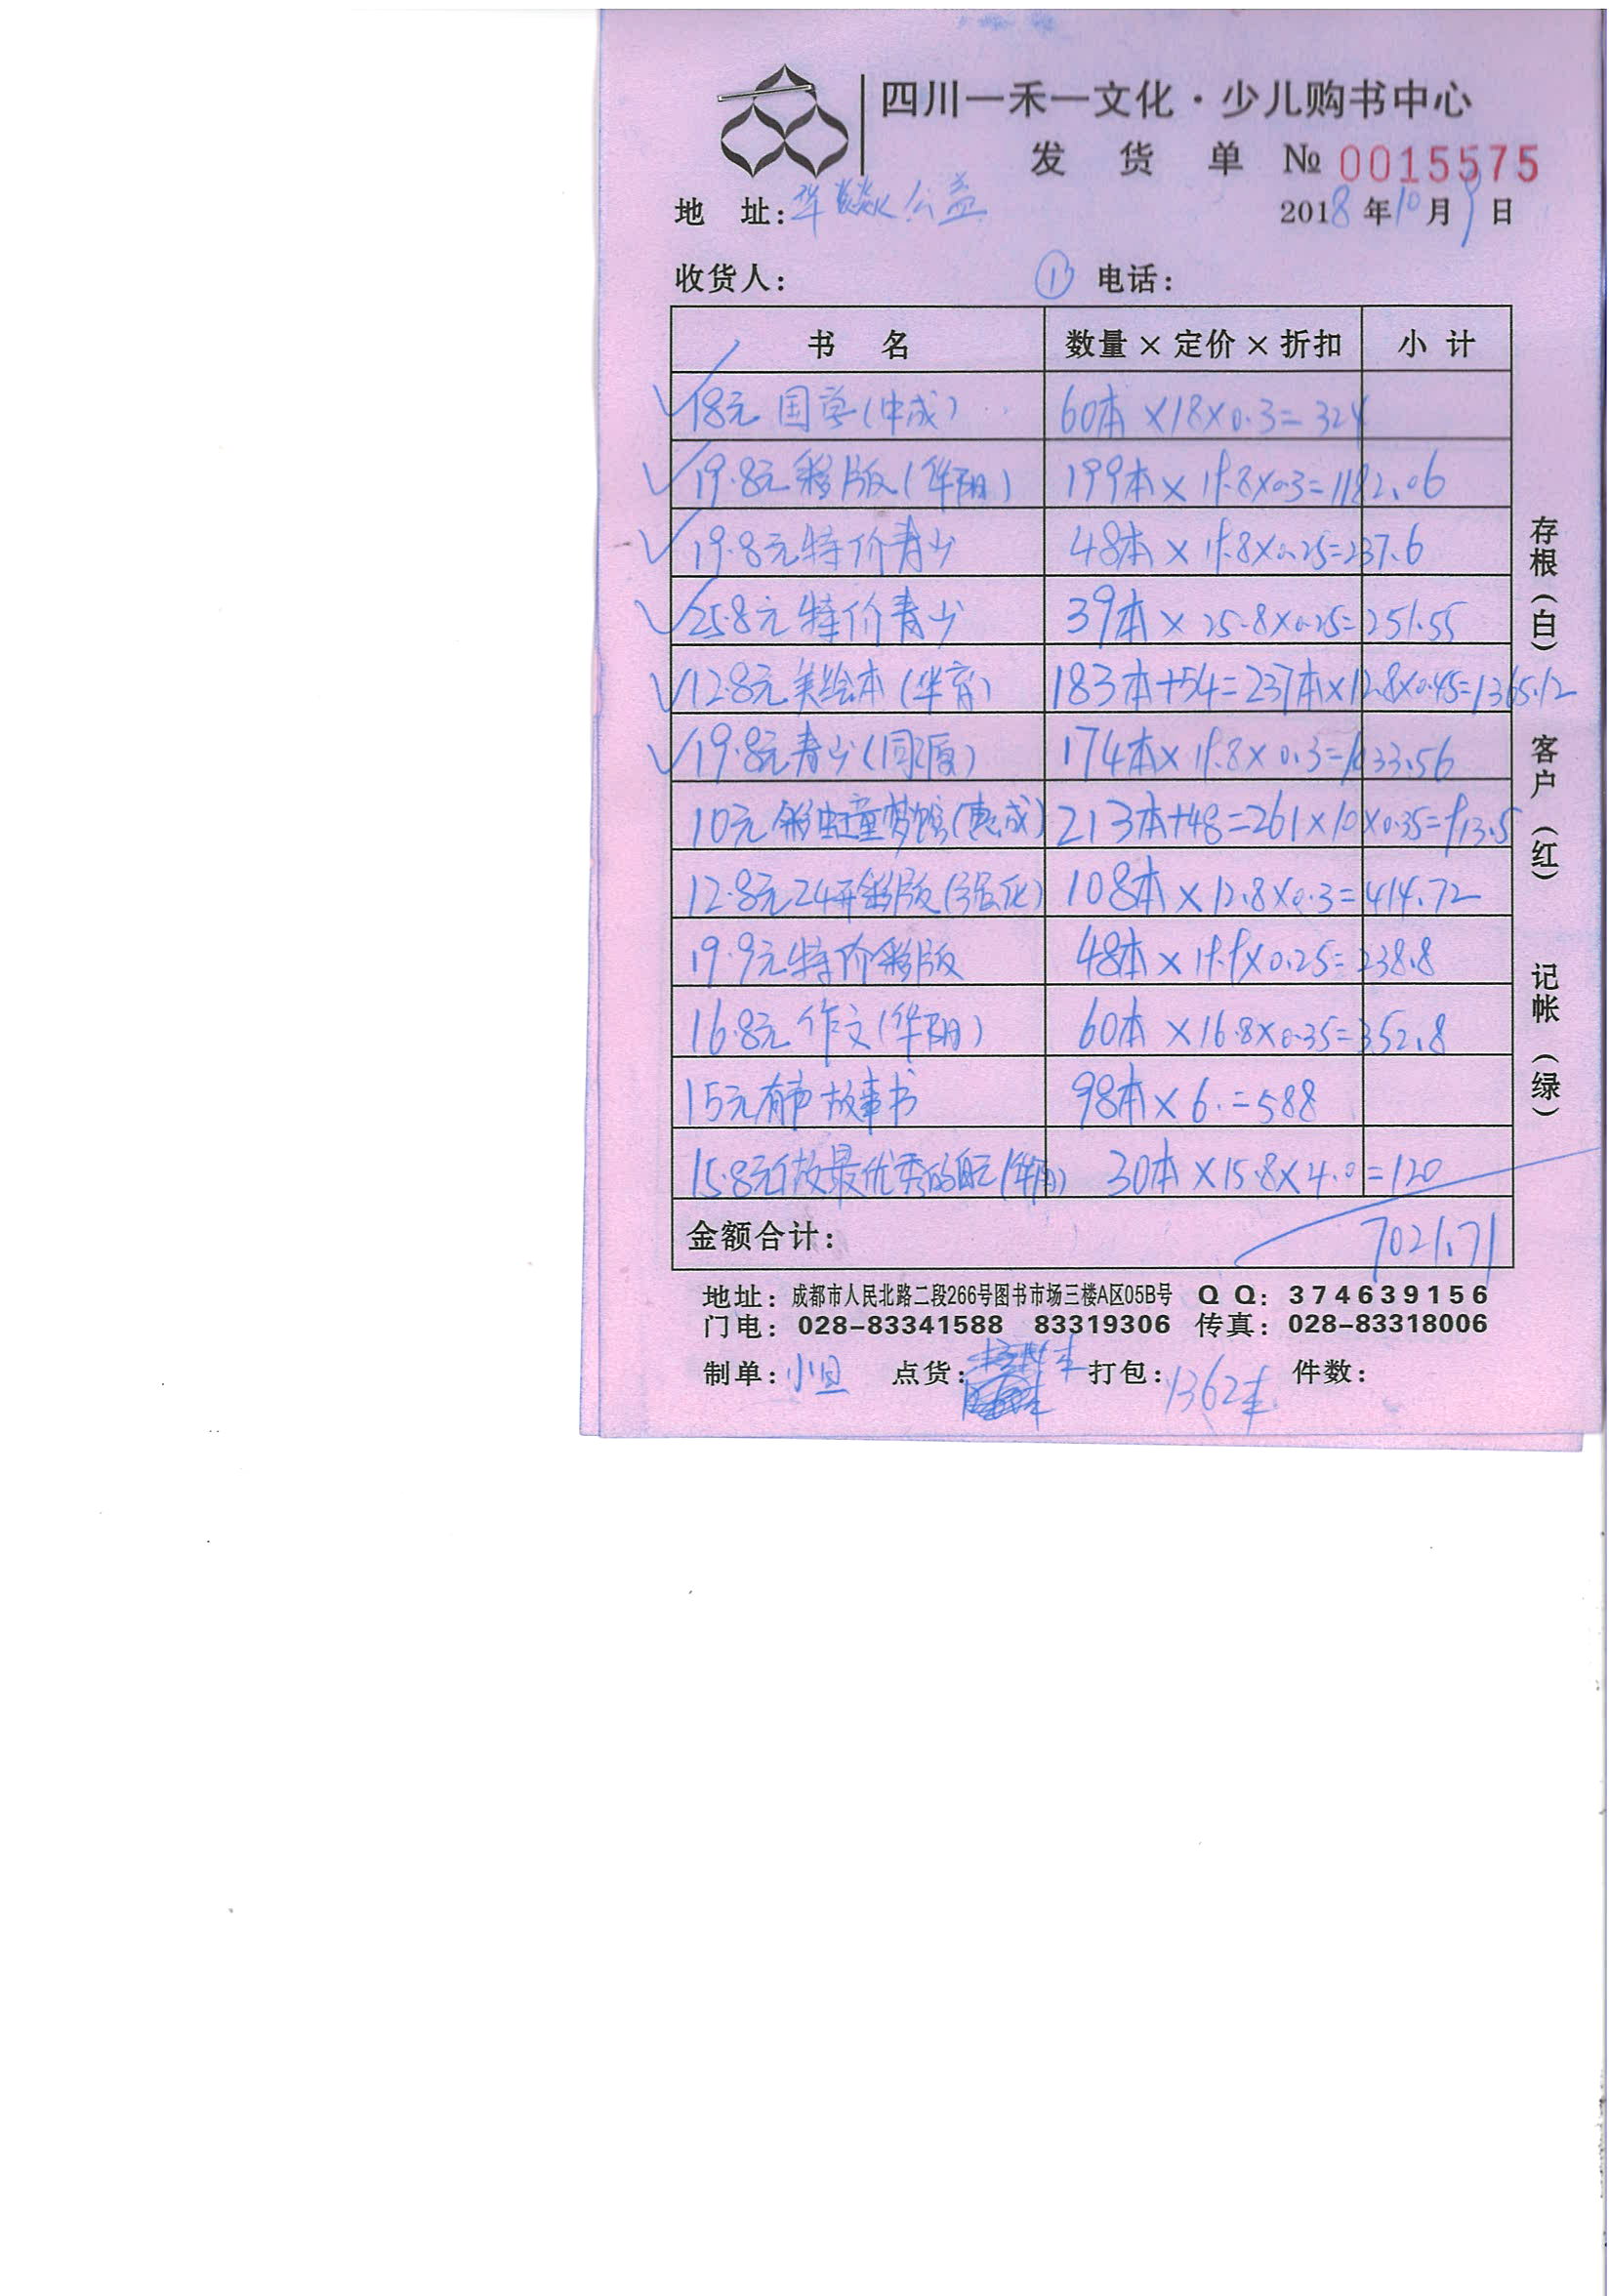 四川一禾一文化·少儿购书中心
发 货 单 № 0015575
地 址:华燚公益 2018年10月9日
收货人: ① 电话:
书 名 数量×定价×折扣 小 计
18元 国学(中成) 60本×18×0.3=324
19.8元彩版(华阳) 199本×19.8×0.3=1182.06
19.8元特价青少 48本×19.8×0.25=237.6
25.8元特价青少 39本×25.8×0.25=251.55
12.8元美绘本(华育) 183本+54=237本×12.8×0.45=1365.12
19.8元青少(同源) 174本×19.8×0.3=1033.56
10元彩虹童梦馆(惠成) 213本+48=261×10×0.35=913.5
12.8元24开彩版(强化) 108本×12.8×0.3=414.72
19.9元特价彩版 48本×19.9×0.25=238.8
16.8元作文(华阳) 60本×16.8×0.35=352.8
15元有声故事书 98本×6.=588
15.8元做最优秀的自己(华阳) 30本×15.8×4.0=120
金额合计: 7021.71
地址:成都市人民北路二段266号图书市场三楼A区05B号 QQ:374639156
门电:028-83341588 83319306 传真:028-83318006
制单:小旦 点货: 打包: 1362本 件数:
存根(白) 客户(红) 记帐(绿)